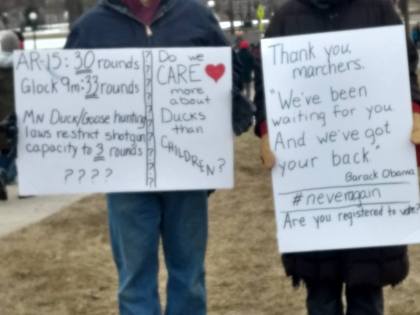 AR-15: 30 rounds
Glock 9m: 33 rounds
MN Duck/Goose hunting
laws restrict shotgun
capacity to 3 rounds
? ? ? ?
Do we
CARE ♥
more
about
Ducks
than
CHILDREN?
Thank you,
marchers.
"We've been
waiting for you.
And we've got
your back"
Barack Obama
#neveragain
Are you registered to vote?